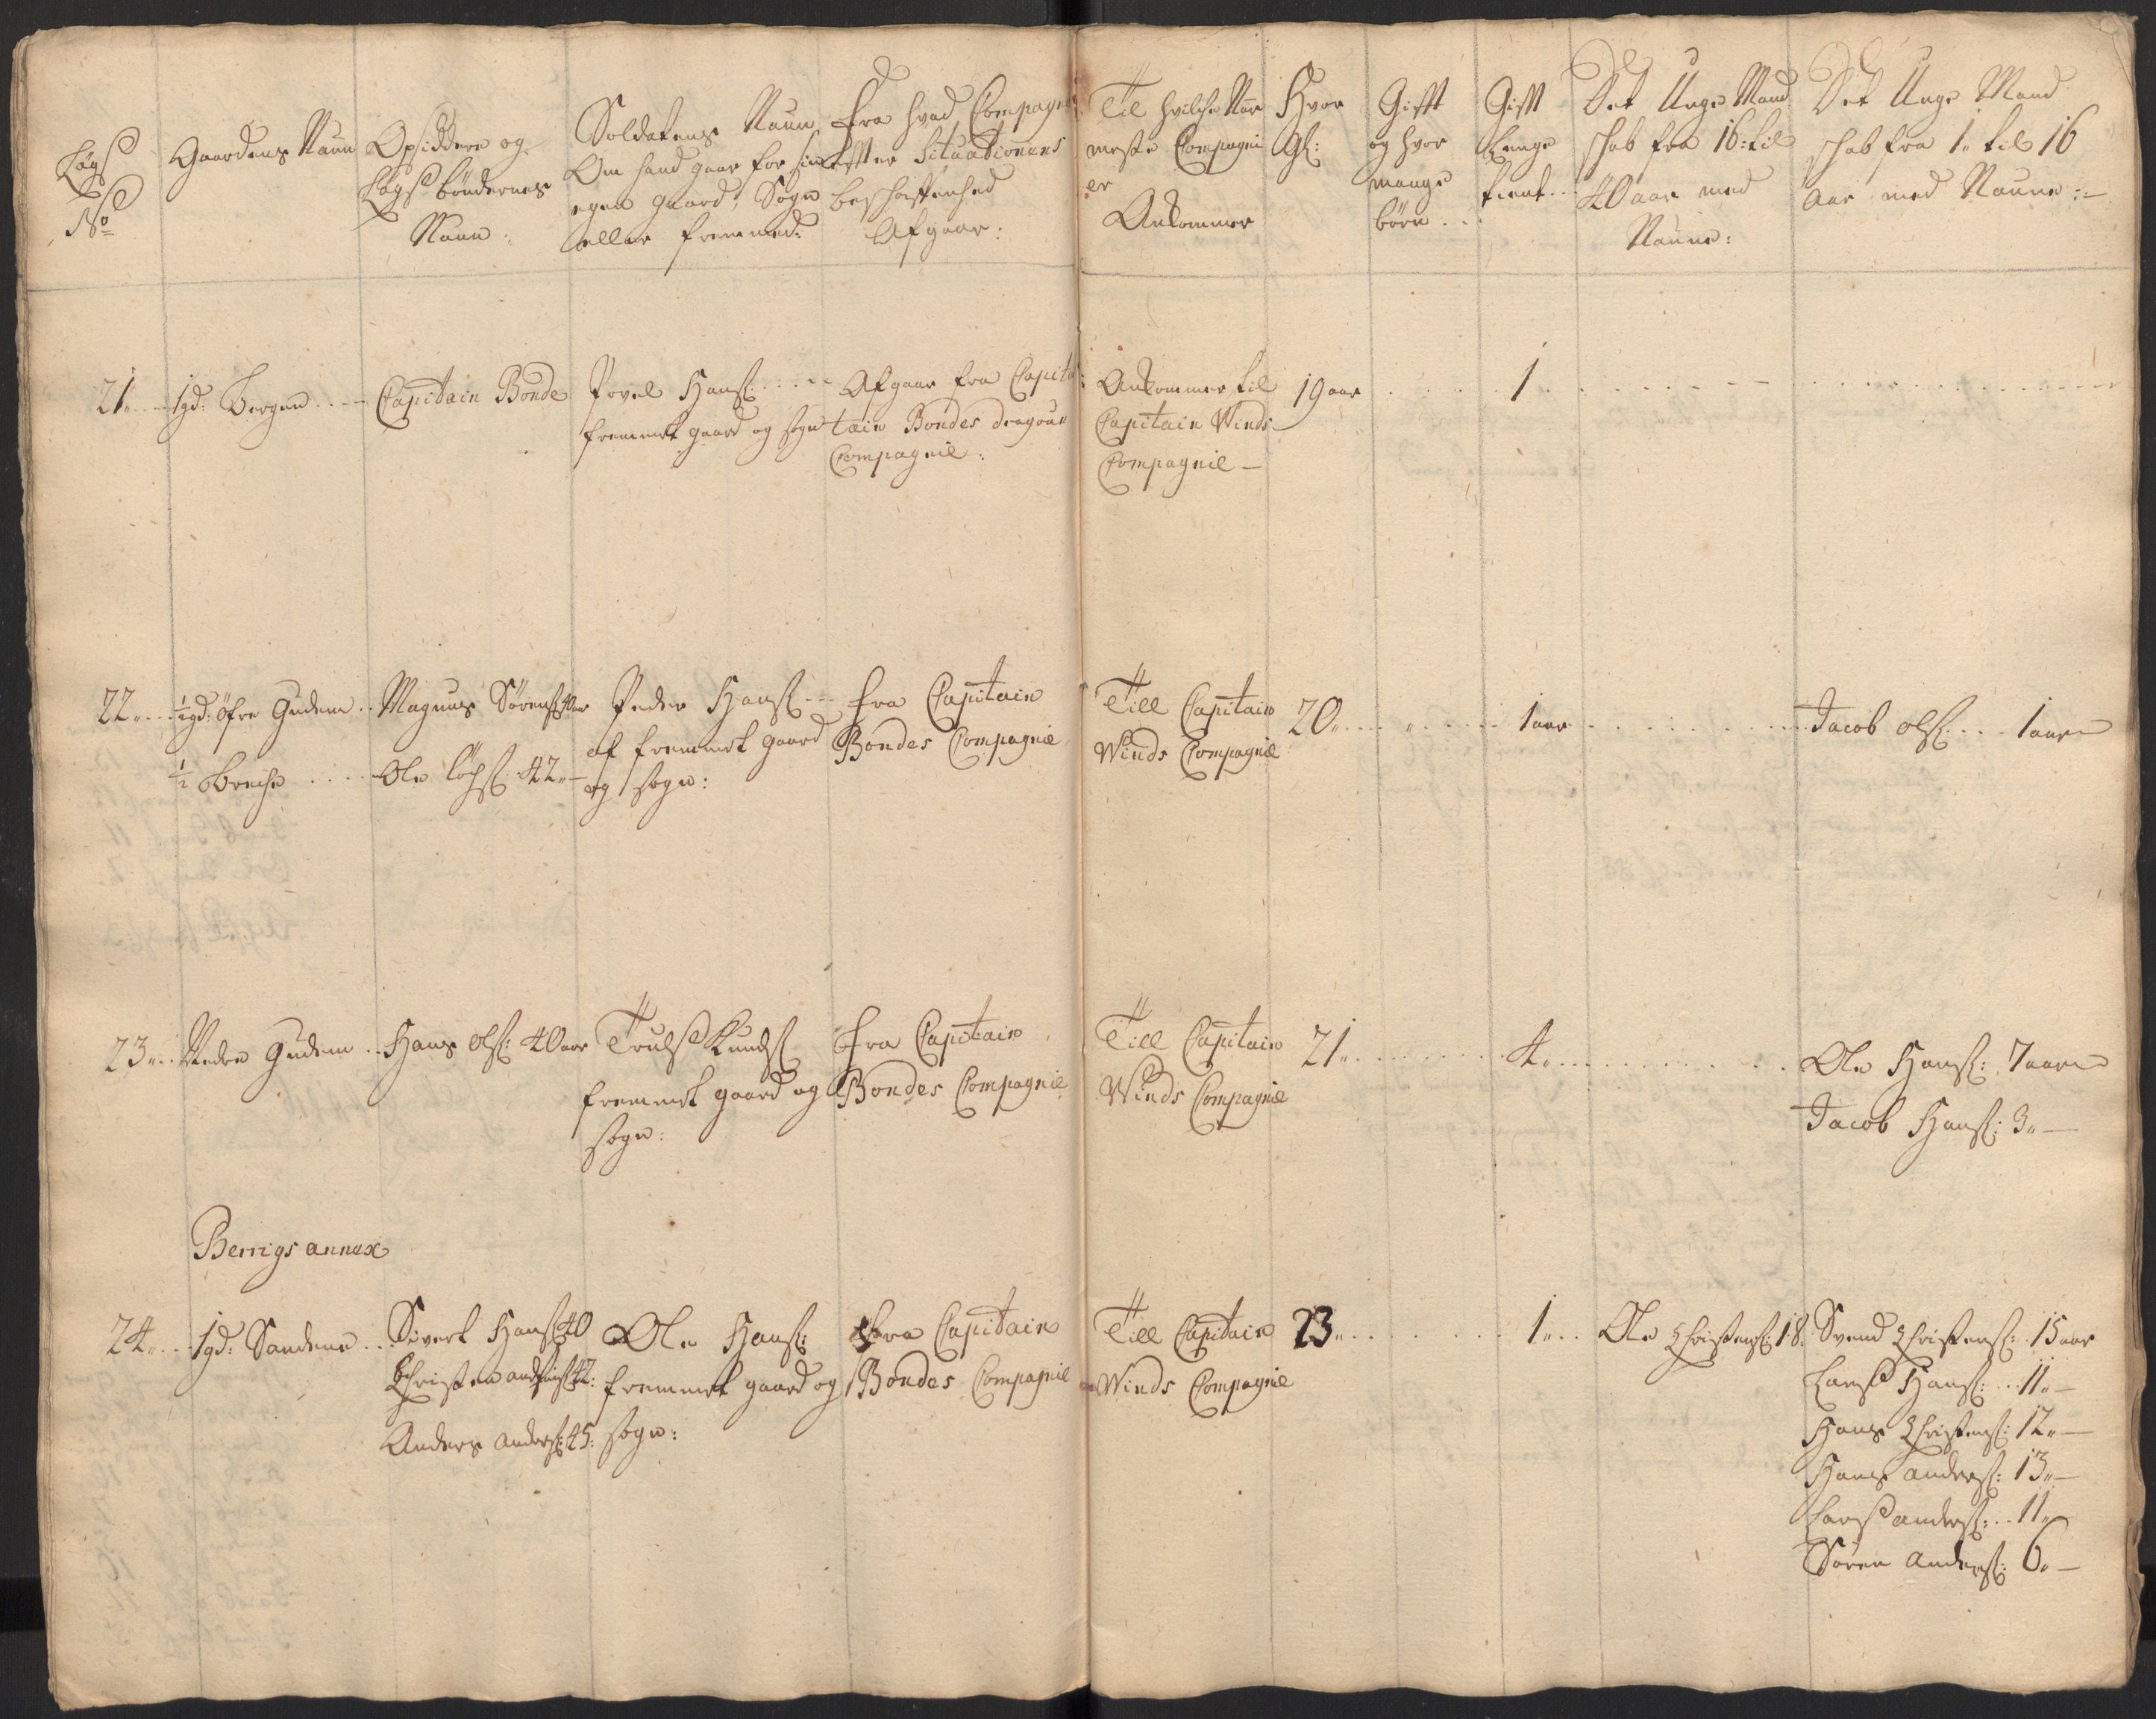 Lægs
No
Gaardens Naun
Opsiddere og
Lægs böndernes
Naun:
Soldatens Naun
Om hand gaar for sin
egen gaard, Sogn
eller fremmed:
Fra hvad Compagnie
Efter Situationens
beschaffenhed
Afgaar:
Til hvilche Nær
meste Compagni
er
Ankommer
Hvor
Gl:
Gifft
og hvor
mange
börn..
Gifft
Lenge
tient...
Det Unge Mand
schab fra 16: til
40 aar med
Naune:
Det Unge Mand
schab fra 1. til 16
Aar med Naune:-
21... 1gd: Bergen...
Capitain Bonde
Povel Hanss:...
fremmet gaard og sogn
Afgaar fra Capi
tain Bondes dragou
Compagnie:
Ankommer til
Capitain Winds
Compagnie -
19 aar
1
22... ½gd: öfre Gudem..
½ Brechе...
Magnus Sörenss 40 aar
Ole 42.
Peder Hanss..
af fremmet gaard
og sogn:
fra Capitain
Bondes Compagnie
Till Capitain
Winds Compagnie
20
1 aar
Jacob olss... 1 aar
23... Nedre Gudem..
Hans olss: 40 aar
Trulss Knudss
fremmet gaard og
sogn:
Fra Capitain
Bondes Compagnie
Till Capitain
Winds Compagnie
21
4
Ole Hanss: 7 aar
Jacob Hanss: 3. -
Berrigs annex
24... 1gd: Sandene..
Sivert Hanss 40
Christen 42:
Anders anderss: 45:
Ole Hanss:
fremmet gaard og
sogn:
Fra Capitain
Bondes Compagnie
Till Capitain
Winds Compagnie
23
1
Ole Christenss: 18:
Svend Christenss: 15 aar
Larss Hanss:.. 11. -
Hans Christenss: 12. -
Hans anderss: 13. -
Larss anderss:.. 11.
Sören anderss: 6. -